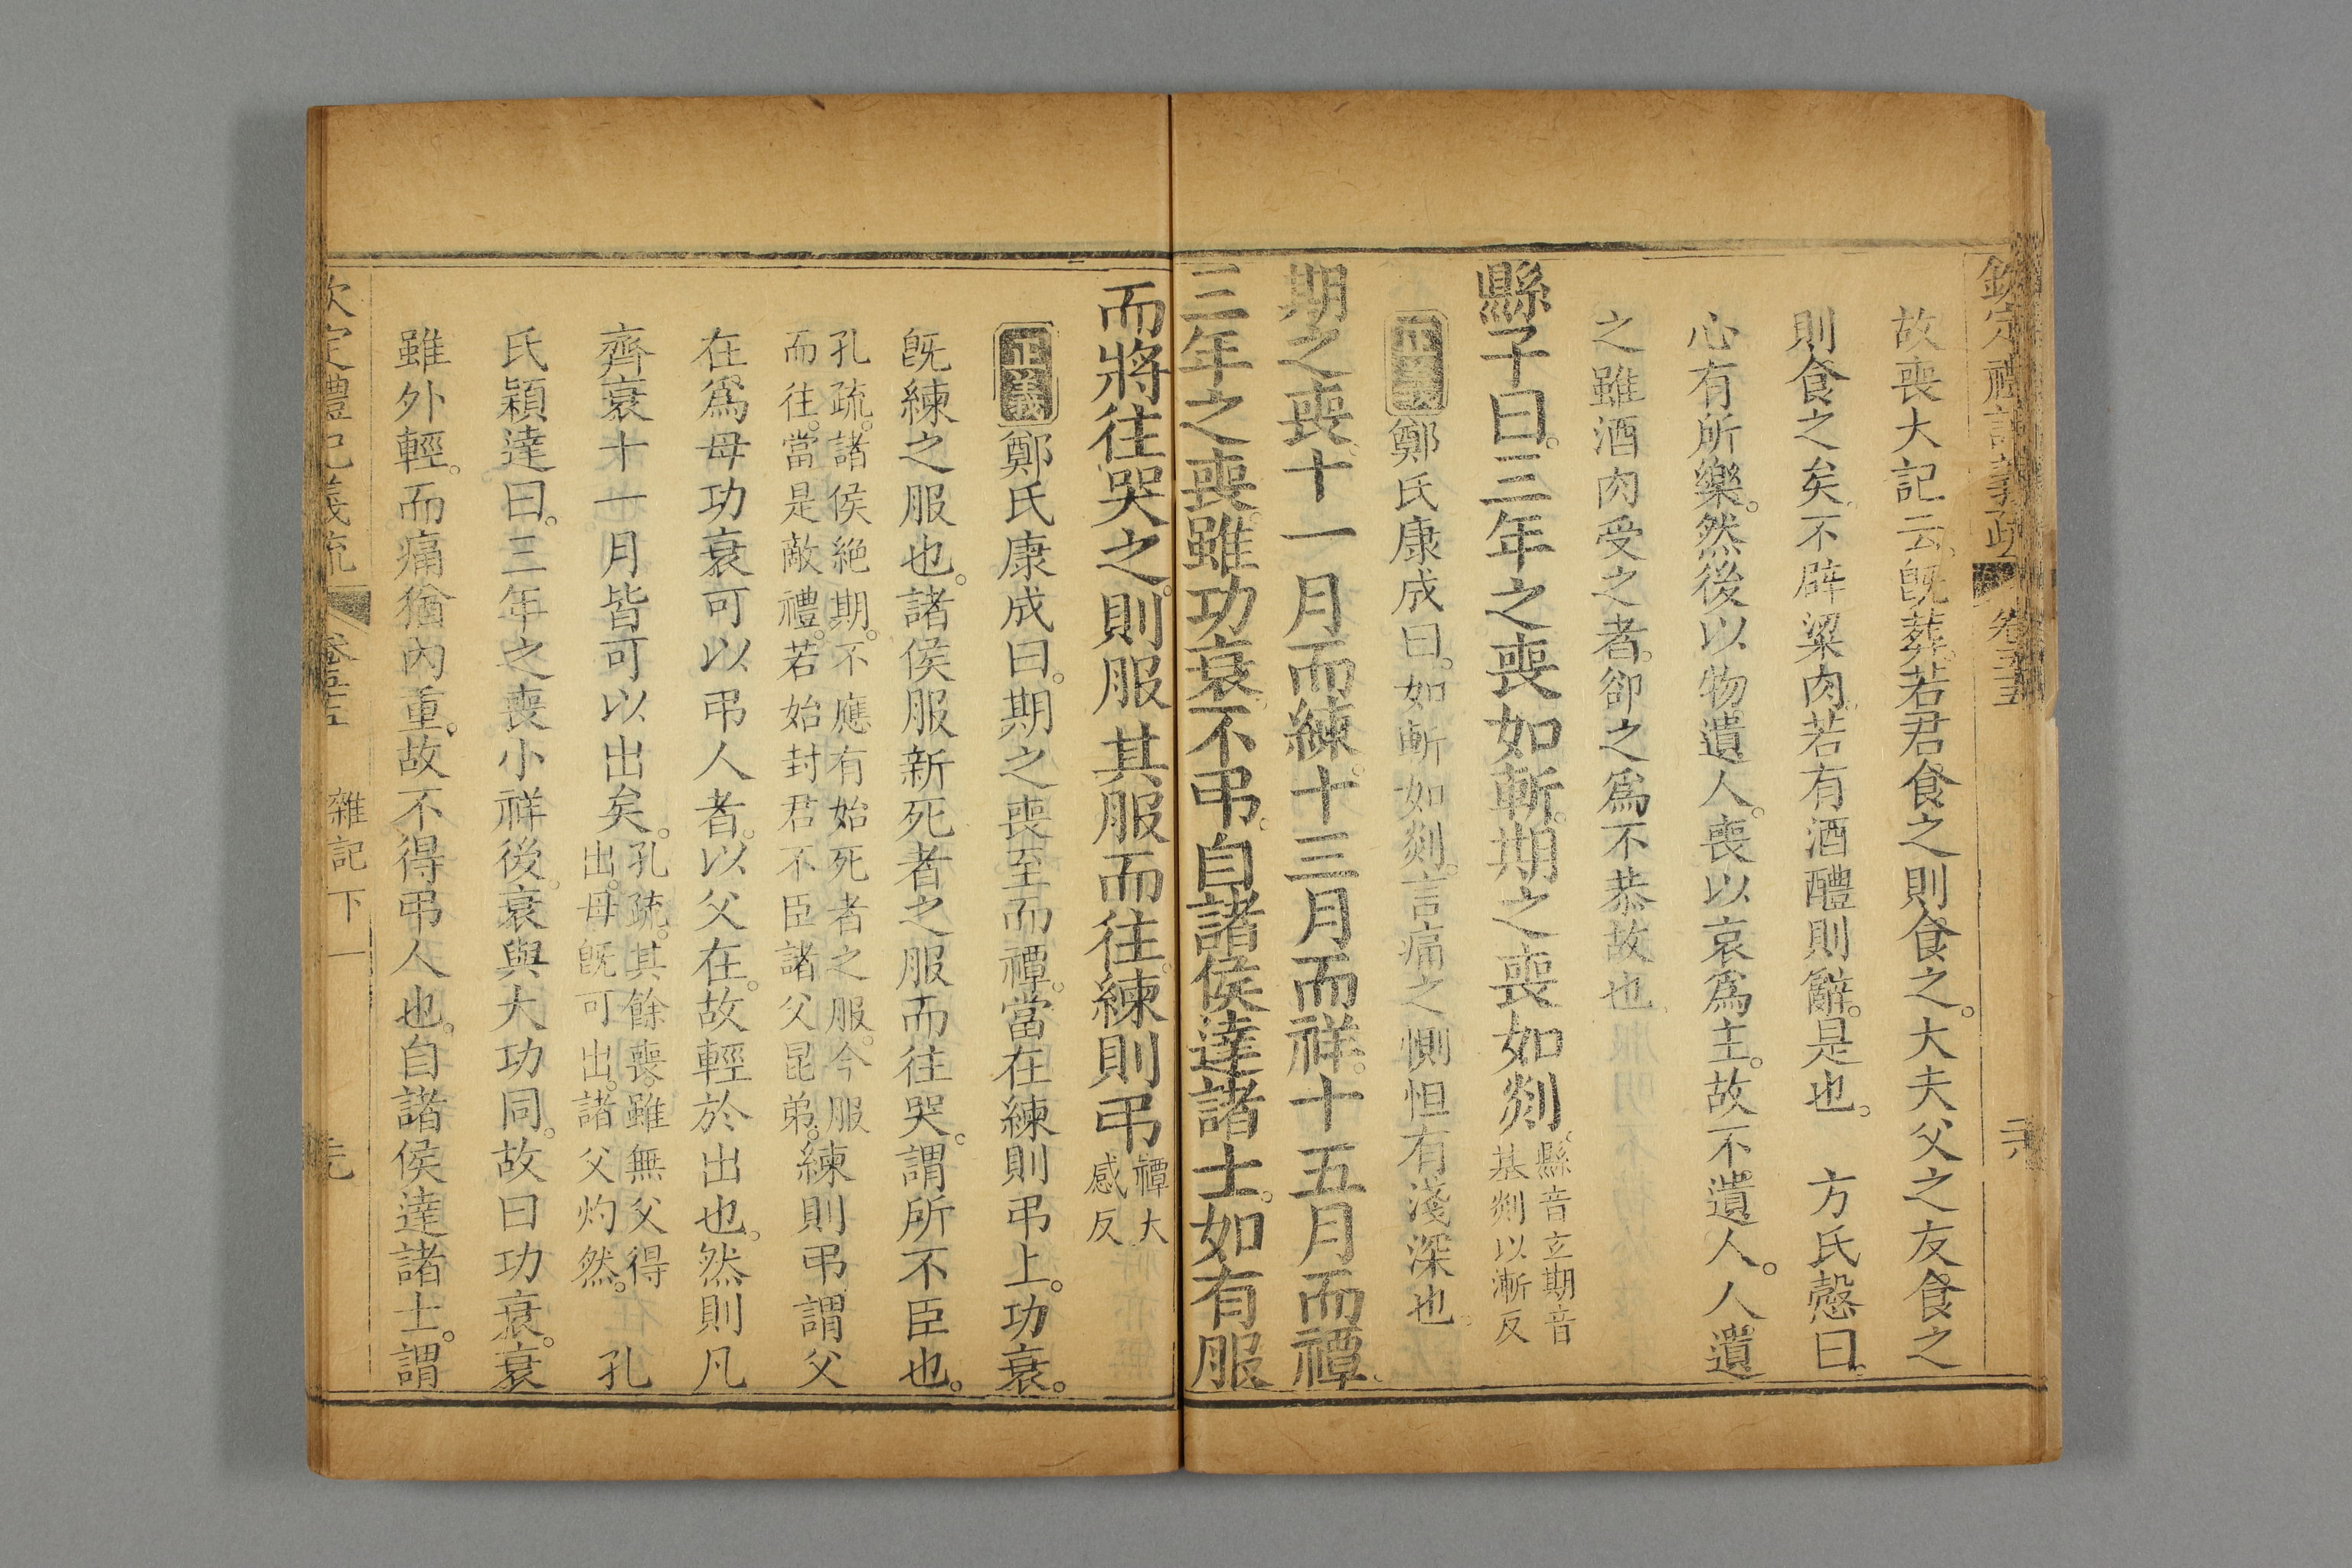 欽定禮記義疏 卷五十五
故喪大記云。旣葬。若君食之則食之。大夫父之友食之
則食之矣。不辟粱肉。若有酒醴則辭。是也。 方氏慤曰。
心有所樂。然後以物遺人。喪以哀爲主。故不遺人。人遺
之雖酒肉受之者。卻之爲不恭故也
縣子曰。三年之喪如斬。期之喪如剡。縣音玄期音
基剡以漸反
正義 鄭氏康成曰。如斬如剡。言痛之惻怛有淺深也。
期之喪。十一月而練。十三月而祥。十五月而禫。
三年之喪。雖功衰。不弔。自諸侯達諸士。如有服
而將往哭之。則服其服而往。練則弔 禫大
感反
正義 鄭氏康成曰。期之喪至而禫。當在練則弔上。功衰。
旣練之服也。諸侯服新死者之服而往哭。謂所不臣也。
孔疏。諸侯絶期。不應有始死者之服。今服
而往。當是敵禮。若始封君不臣諸父昆弟。練則弔。謂父
在。爲母功衰可以弔人者。以父在。故輕於出也。然則凡
齊衰十一月皆可以出矣。孔疏。其餘喪。雖無父得
出。母旣可出。諸父灼然。 孔
氏穎達曰。三年之喪小祥後。衰與大功同。故曰功衰。衰
雖外輕。而痛猶內重。故不得弔人也。自諸侯達諸士。謂
欽定禮記義疏 卷五十五 雜記下一